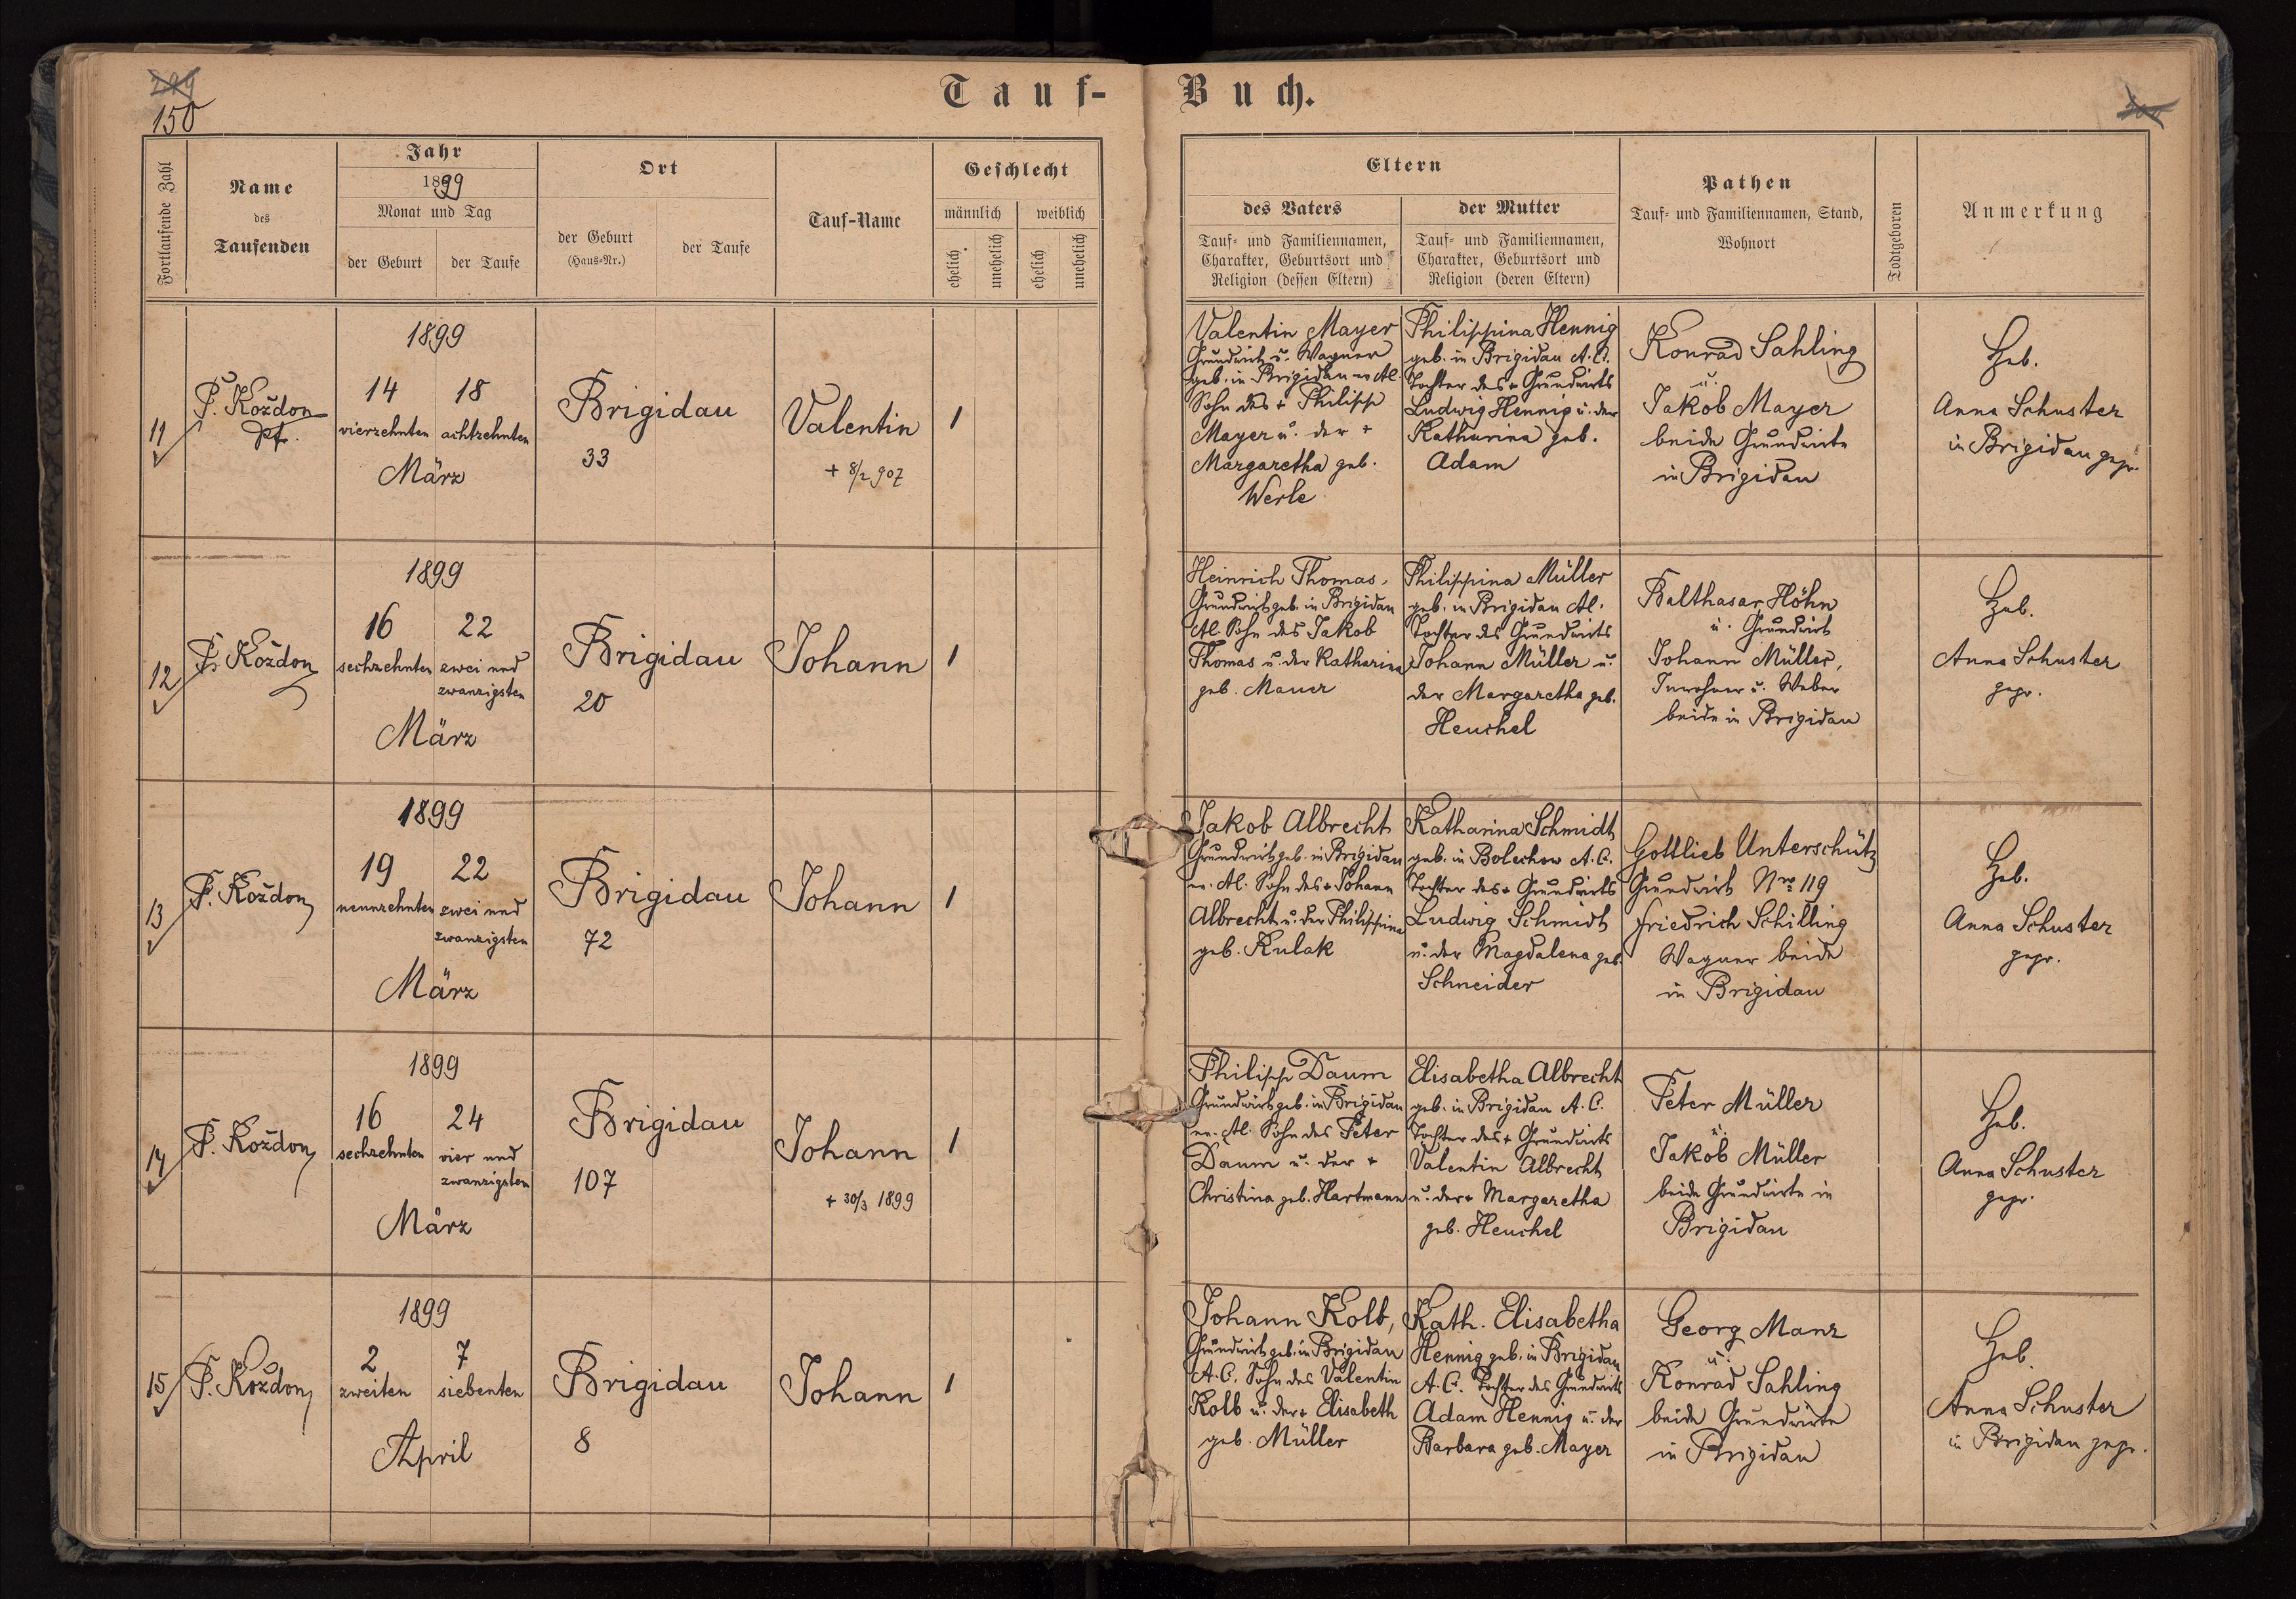 150
Tauf-Buch.
Fortlaufende Zahl
Name
des
Taufenden
Jahr
1899
Monat und Tag
der Geburt
der Taufe
Ort
der Geburt
(Haus-Nr.)
der Taufe
Tauf-Name
Geschlecht
männlich
weiblich
ehelich
unehelich
ehelich
unehelich
Eltern
des Vaters
Tauf- und Familiennamen,
Charakter, Geburtsort und
Religion (dessen Eltern)
der Mutter
Tauf- und Familiennamen,
Charakter, Geburtsort und
Religion (deren Eltern)
Pathen
Tauf- und Familiennamen, Stand,
Wohnort
Todtgeboren
Anmerkung
11
P. Koždon
Pfr.
1899
14
vierzehnten
18
achtzehnten
März
Brigidau
33
Valentin
+ 8/2 907
1
Valentin Mayer
Grundwirt u. Wagner
geb. in Brigidau ev. Al.
Sohn des + Philipp
Mayer u. der +
Margaretha geb.
Werle
Philippina Hennig
geb. in Brigidau A. C.
Tochter des + Grundwirts
Ludwig Hennig u. der
Katharina geb.
Adam
Konrad Sahling
u.
Jakob Mayer
beide Grundwirte
in Brigidau
Heb.
Anna Schuster
in Brigidau gepr.
12
P. Koždon
1899
16
sechzehnten
22
zwei und
zwanzigsten
März
Brigidau
20
Johann
1
Heinrich Thomas,
Grundwirt geb. in Brigidau
Al. Sohn des Jakob
Thomas u. der Katharina
geb. Mauer
Philippina Müller
geb. in Brigidau Al.
Tochter des Grundwirts
Johann Müller u.
der Margaretha geb.
Heuchel
Balthasar Höhn
u. Grundwirt
Johann Müller,
Inwohner u. Weber
beide in Brigidau
Heb.
Anna Schuster
gepr.
13
P. Koždon
1899
19
neunzehnten
22
zwei und
zwanzigsten
März
Brigidau
72
Johann
1
Jakob Albrecht
Grundwirt geb. in Brigidau
ev. Al. Sohn des + Johann
Albrecht u. der Philippina
geb. Kulak
Katharina Schmidt
geb. in Bolechow A. C.
Tochter des + Grundwirts
Ludwig Schmidt
u. der Magdalena geb.
Schneider
Gottlieb Unterschütz
Grundwirt Nro 119
Friedrich Schilling
Wagner beide
in Brigidau
Heb.
Anna Schuster
gepr.
14
P. Koždon
1899
16
sechzehnten
24
vier und
zwanzigsten
März
Brigidau
107
Johann
+ 30/3 1899
1
Philipp Daum
Grundwirt geb. in Brigidau
ev. Al. Sohn des Peter
Daum u. der +
Christina geb. Hartmann
Elisabetha Albrecht
geb. in Brigidau A. C.
Tochter des + Grundwirts
Valentin Albrecht
u. der + Margaretha
geb. Heuchel
Peter Müller
u.
Jakob Müller
beide Grundwirte in
Brigidau
Heb.
Anna Schuster
gepr.
15
P. Koždon
1899
2
zweiten
7
siebenten
April
Brigidau
8
Johann
1
Johann Kolb,
Grundwirt geb. in Brigidau
A. C. Sohn des Valentin
Kolb u. der + Elisabeth
geb. Müller
Kath. Elisabetha
Hennig geb. in Brigidau
A. C. Tochter des Grundwirts
Adam Hennig u. der
Barbara geb. Mayer
Georg Manz
u.
Konrad Sahling
beide Grundwirte
in Brigidau
Heb.
Anna Schuster
in Brigidau gepr.